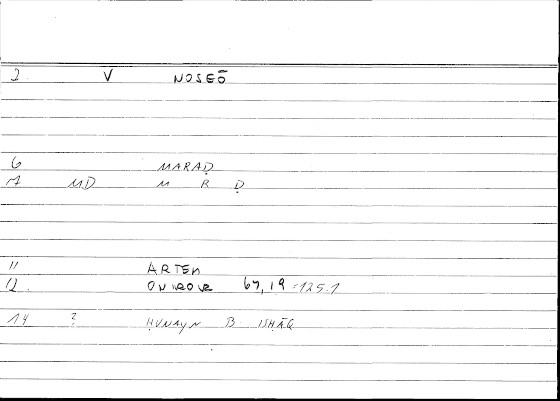 2 V NOSEŌ
6 MARAḌ
7 MD M R Ḍ
11 ARTEM
12 ONIROCR 67,19 -125.1
14 ? ḤUNAYN B ISḤĀQ